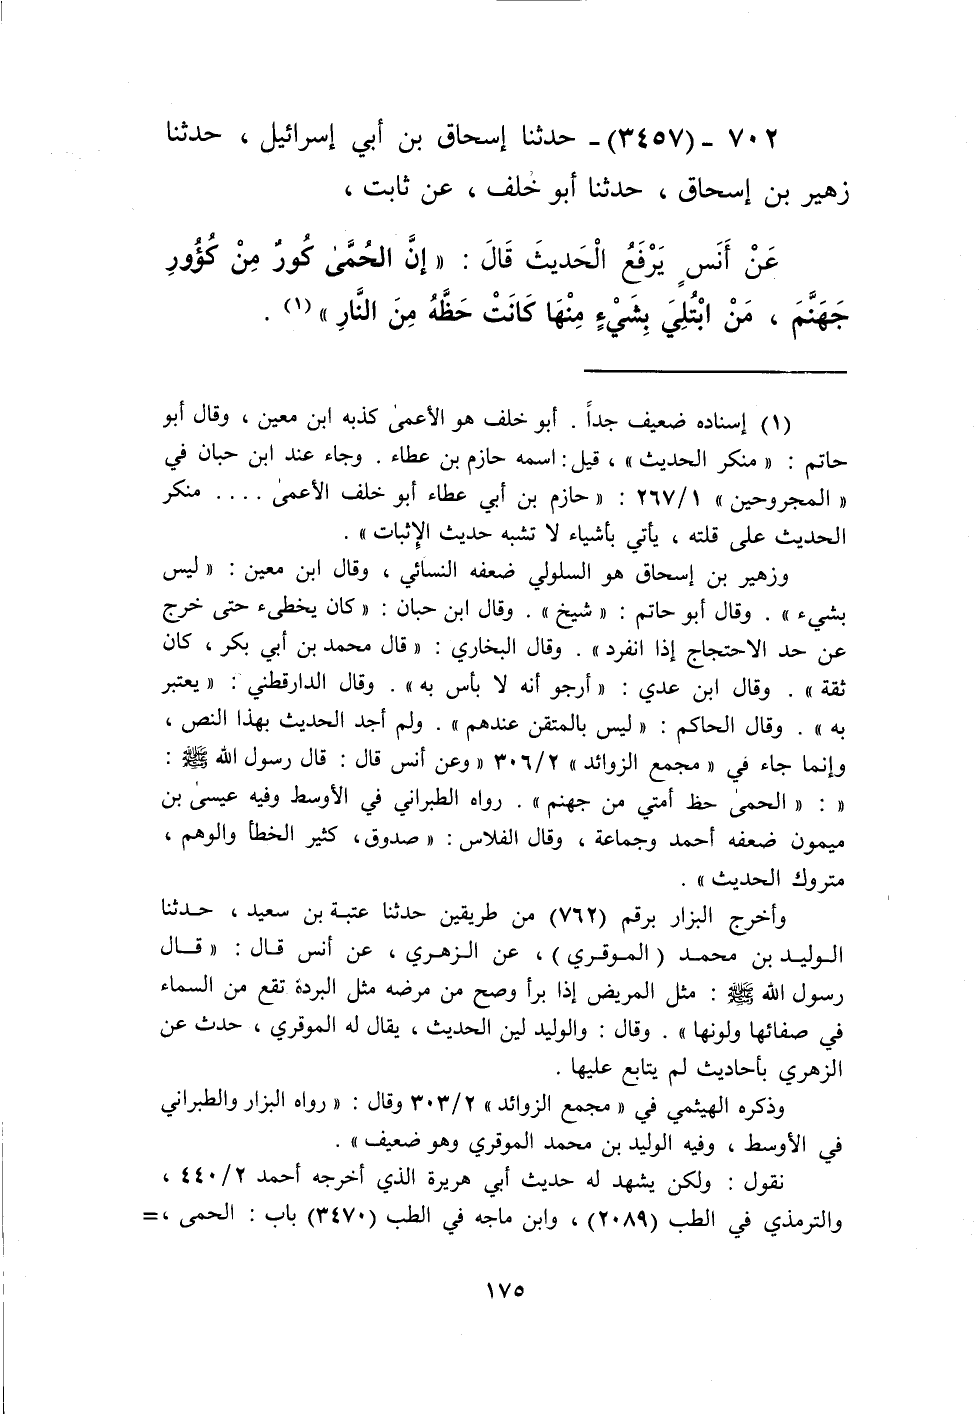 ٧٠٢ - (٣٤٥٧) - حدثنا إسحاق بن أبي إسرائيل ، حدثنا
زهير بن إسحاق ، حدثنا أبو خلف ، عن ثابت ،
عَنْ أَنَسٍ يَرْفَعُ الْحَدِيثَ قَالَ : « إِنَّ الْحُمَّىٰ كُورٌ مِنْ كُؤُورِ
جَهَنَّمَ ، مَنْ ابْتُلِيَ بِشَيْءٍ مِنْهَا كَانَتْ حَظَّهُ مِنَ النَّارِ » (١) .
(١) إسناده ضعيف جداً . أبو خلف هو الأعمىٰ كذبه ابن معين ، وقال أبو
حاتم : « منكر الحديث » ، قيل : اسمه حازم بن عطاء . وجاء عند ابن حبان في
« المجروحين » ٢٦٧/١ : « حازم بن أبي عطاء أبو خلف الأعمىٰ .... منكر
الحديث على قلته ، يأتي بأشياء لا تشبه حديث الإثبات » .
وزهير بن إسحاق هو السلولي ضعفه النسائي ، وقال ابن معين : « ليس
بشيء » . وقال أبو حاتم : « شيخ » . وقال ابن حبان : « كان يخطىء حتى خرج
عن حد الاحتجاج إذا انفرد » . وقال البخاري : « قال محمد بن أبي بكر ، كان
ثقة » . وقال ابن عدي : « أرجو أنه لا بأس به » . وقال الدارقطني : « يعتبر
به » . وقال الحاكم : « ليس بالمتقن عندهم » . ولم أجد الحديث بهذا النص ،
وإنما جاء في « مجمع الزوائد » ٣٠٦/٢ « وعن أنس قال : قال رسول الله ﷺ :
« : « الحمىٰ حظ أمتي من جهنم » . رواه الطبراني في الأوسط وفيه عيسىٰ بن
ميمون ضعفه أحمد وجماعة ، وقال الفلاس : « صدوق ، كثير الخطأ والوهم ،
متروك الحديث » .
وأخرج البزار برقم (٧٦٢) من طريقين حدثنا عتبة بن سعيد ، حدثنا
الوليد بن محمد ( الموقري ) ، عن الزهري ، عن أنس قال : « قال
رسول الله ﷺ : مثل المريض إذا برأ وصح من مرضه مثل البردة تقع من السماء
في صفائها ولونها » . وقال : والوليد لين الحديث ، يقال له الموقري ، حدث عن
الزهري بأحاديث لم يتابع عليها .
وذكره الهيثمي في « مجمع الزوائد » ٣٠٣/٢ وقال : « رواه البزار والطبراني
في الأوسط ، وفيه الوليد بن محمد الموقري وهو ضعيف » .
نقول : ولكن يشهد له حديث أبي هريرة الذي أخرجه أحمد ٤٤٠/٢ ،
والترمذي في الطب (٢٠٨٩) ، وابن ماجه في الطب (٣٤٧٠) باب : الحمى ،=
١٧٥